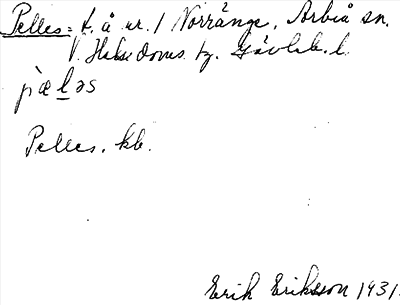 Pelles: t. å nr. 1 Norränge, Arbrå sn.
V. Hels. doms. tg. Gävleb. l.
pæləs
Pelles. kb.
Erik Eriksson 1931.